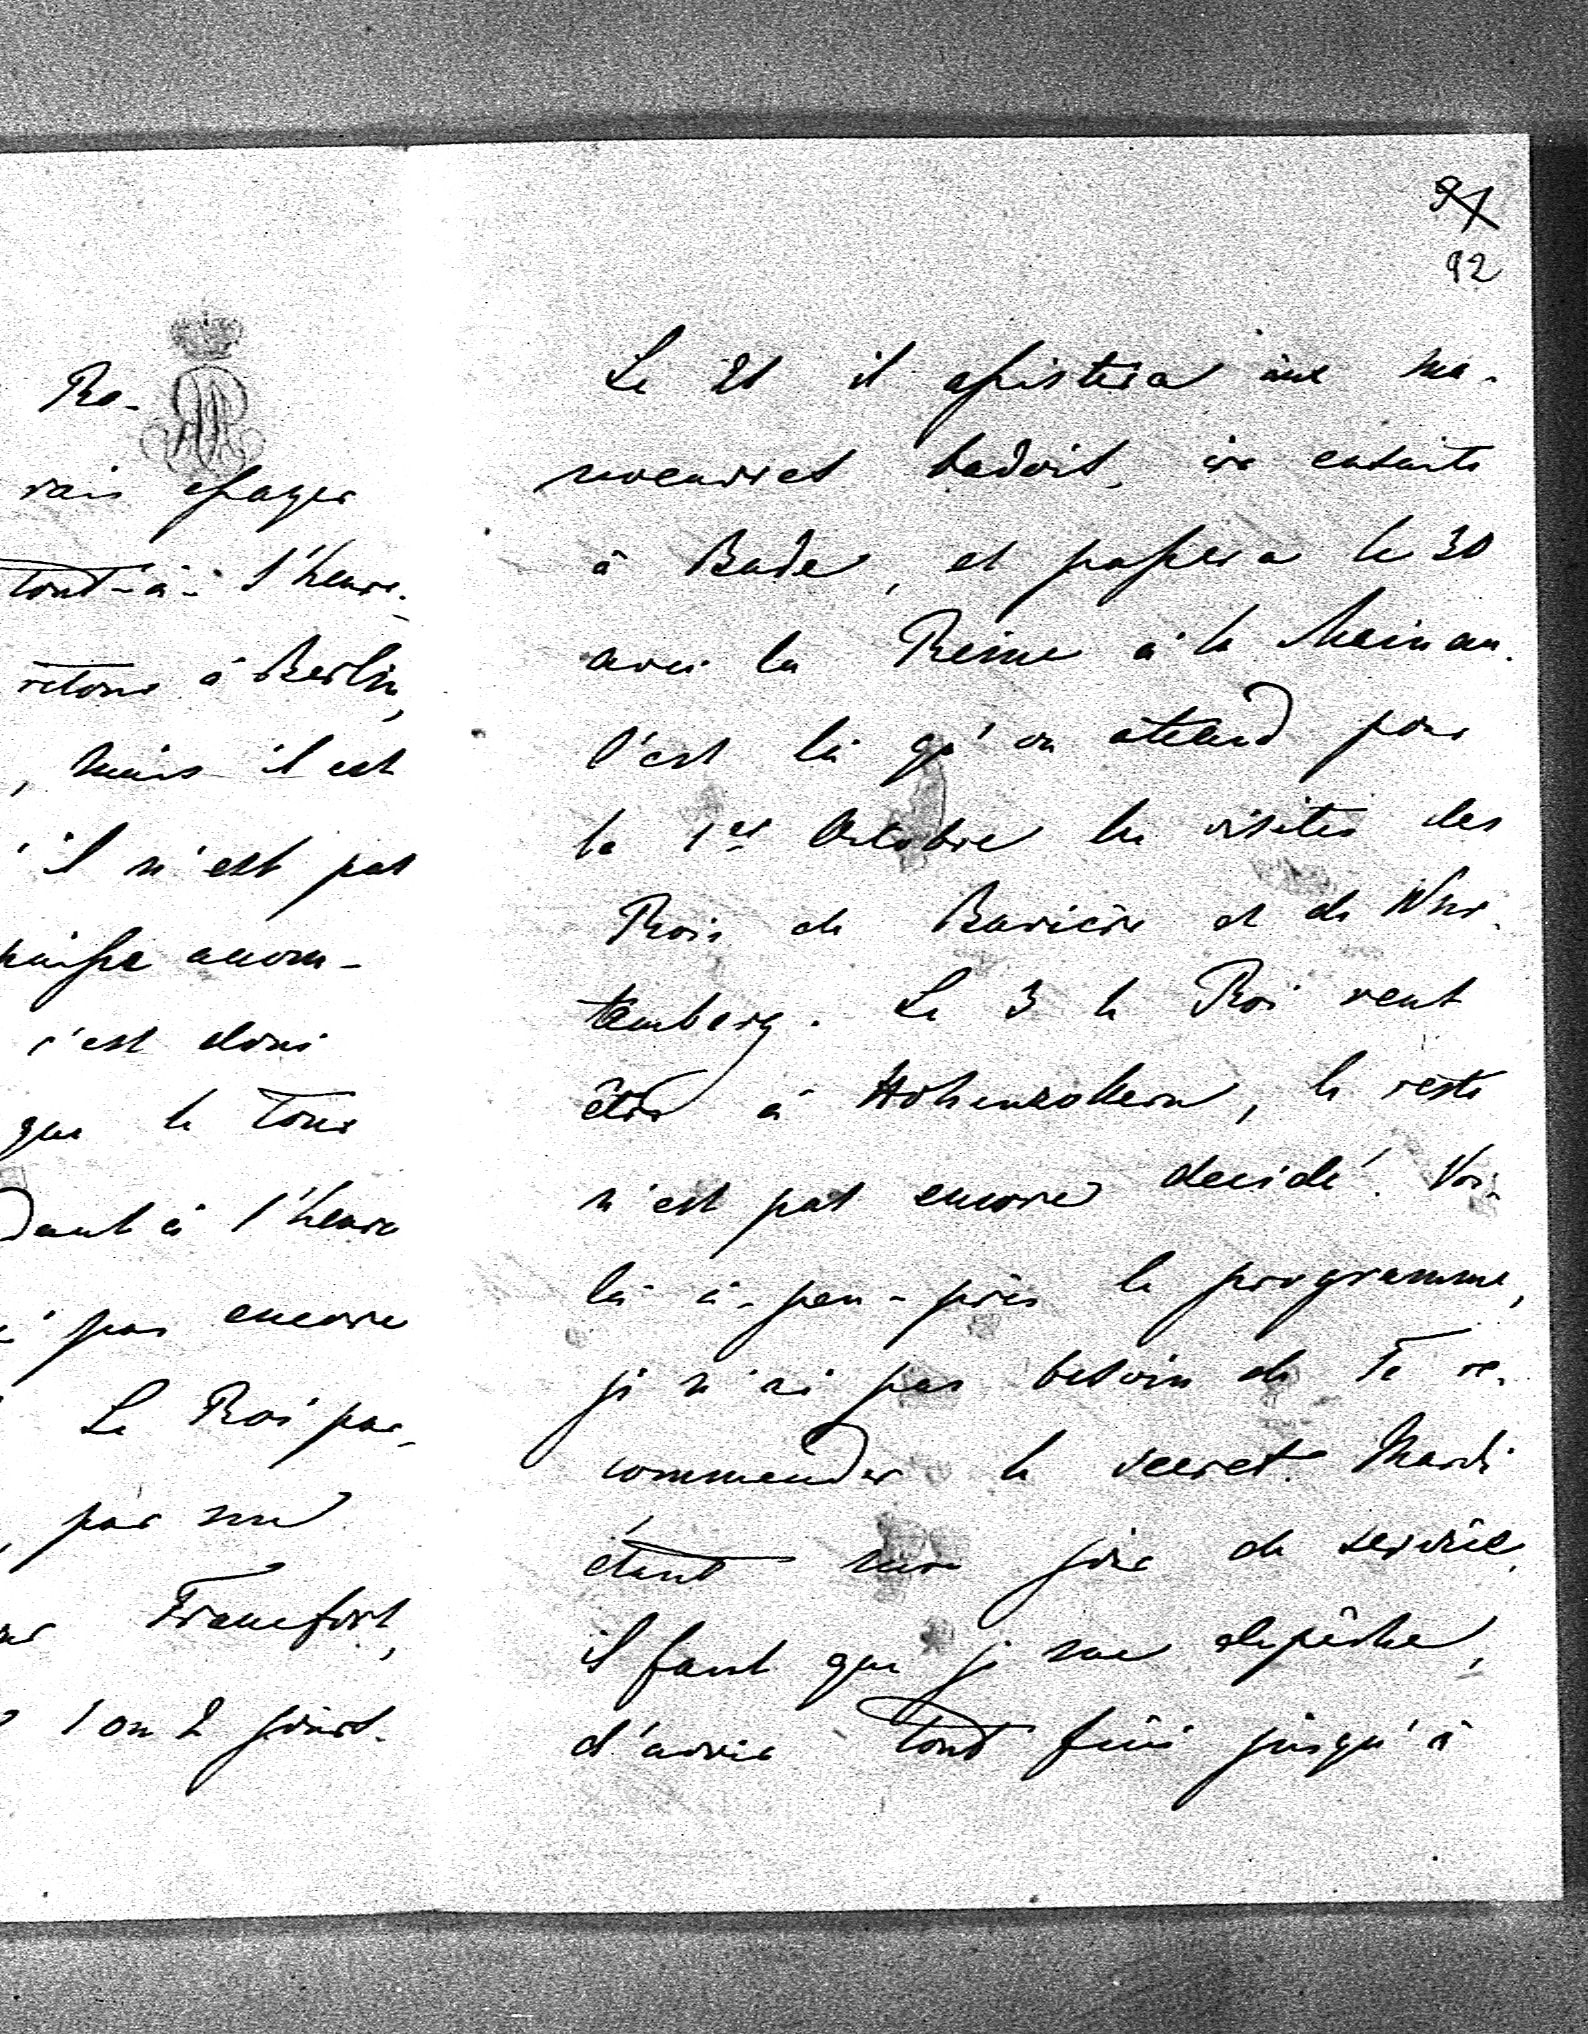 Ra-
rais essayer
tout-à-l'heure.
retour à Berlin,
, mais il est
il n'est pas
puisse accom-
c'est donc
que le tour
dant à l'heure
pas encore
Le Roi par-
, par une
Francfort,
1 ou 2 jours.
91
92
Le 28 il assistera aux ma-
noeuvres badois, ira ensuite
à Bade, et passera le 30
avec la Reine à la Meinau.
C'est là qu'on attend pour
le 1er Octobre les visites des
Rois de Bavière et de Wur-
temberg. Le 3 le Roi veut
être à Hohenzollern, le reste
n'est pas encore decidé. Voi-
là à-peu-près le programme,
je n'ai pas besoin de Te re-
commender le secret. Mardi
étant mon jour de service,
il faut que je me depêche,
d'avoir tout fini jusqu'à